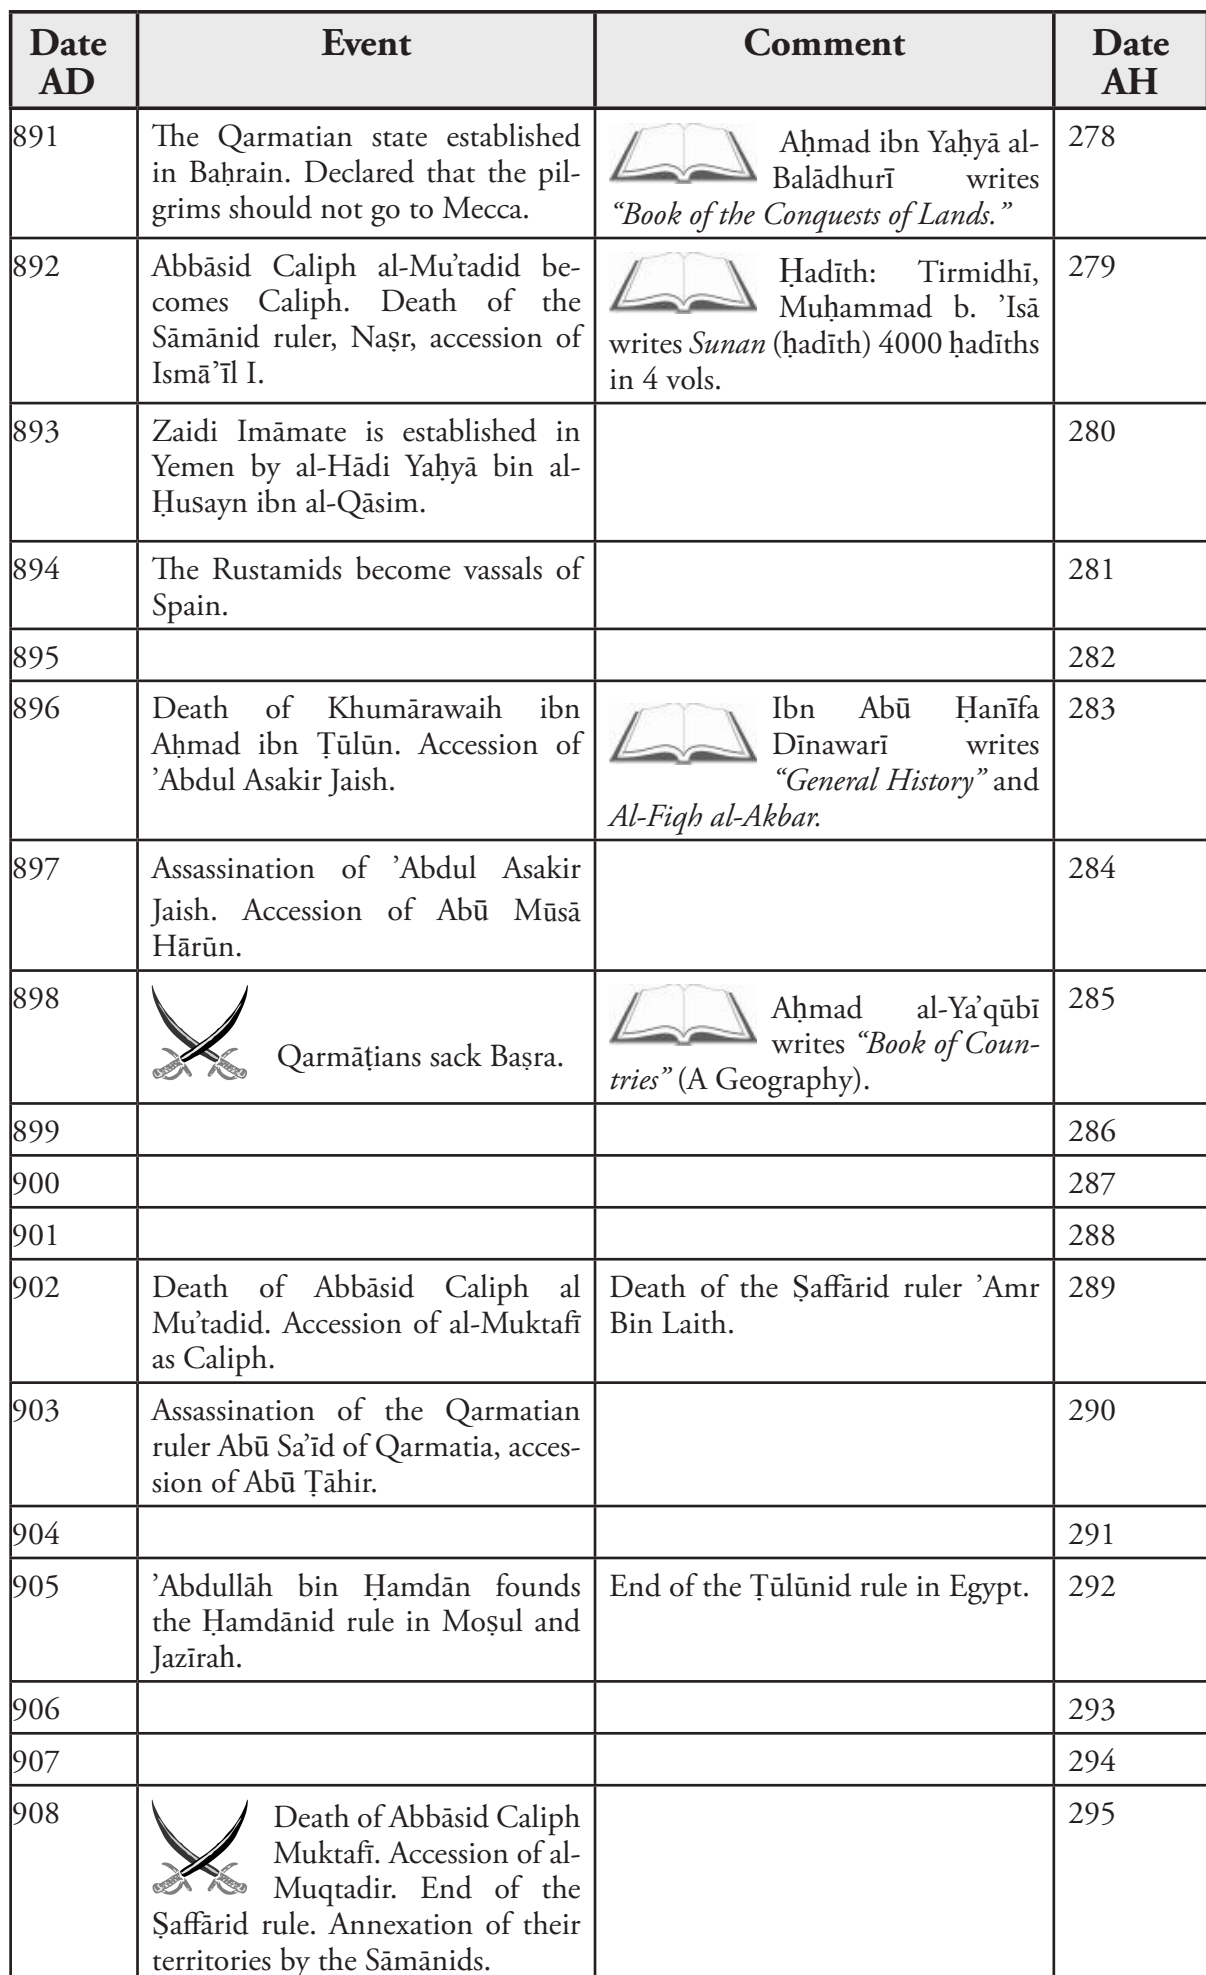 Date AD | Event | Comment | Date AH
891
The Qarmatian state established
in Baḥrain. Declared that the pil-
grims should not go to Mecca.
Aḥmad ibn Yaḥyā al-
Balādhurī writes
“Book of the Conquests of Lands.”
278
892
Abbāsid Caliph al-Mu’tadid be-
comes Caliph. Death of the
Sāmānid ruler, Naṣr, accession of
Ismā’īl I.
Ḥadīth: Tirmidhī,
Muḥammad b. ’Isā
writes Sunan (ḥadīth) 4000 ḥadīths
in 4 vols.
279
893
Zaidi Imāmate is established in
Yemen by al-Hādi Yaḥyā bin al-
Ḥusayn ibn al-Qāsim.
280
894
The Rustamids become vassals of
Spain.
281
895
282
896
Death of Khumārawaih ibn
Aḥmad ibn Ṭūlūn. Accession of
’Abdul Asakir Jaish.
Ibn Abū Ḥanīfa
Dīnawarī writes
“General History” and
Al-Fiqh al-Akbar.
283
897
Assassination of ’Abdul Asakir
Jaish. Accession of Abū Mūsā
Hārūn.
284
898
Qarmāṭians sack Baṣra.
Aḥmad al-Ya’qūbī
writes “Book of Coun-
tries” (A Geography).
285
899
286
900
287
901
288
902
Death of Abbāsid Caliph al
Mu’tadid. Accession of al-Muktafī
as Caliph.
Death of the Ṣaffārid ruler ’Amr
Bin Laith.
289
903
Assassination of the Qarmatian
ruler Abū Sa’īd of Qarmatia, acces-
sion of Abū Ṭāhir.
290
904
291
905
’Abdullāh bin Ḥamdān founds
the Ḥamdānid rule in Moṣul and
Jazīrah.
End of the Ṭūlūnid rule in Egypt.
292
906
293
907
294
908
Death of Abbāsid Caliph
Muktafī. Accession of al-
Muqtadir. End of the
Ṣaffārid rule. Annexation of their
territories by the Sāmānids.
295